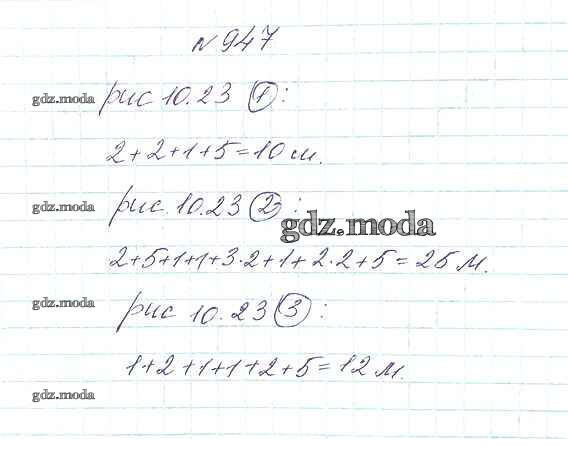 № 947
gdz.moda рис 10.23 ①:
2+2+1+5=10 м.
gdz.moda рис. 10.23 ②:
gdz.moda
2+5+1+1+3·2+1+2·2+5=25 м.
gdz.moda рис 10.23 ③:
1+2+1+1+2+5=12 м.
gdz.moda